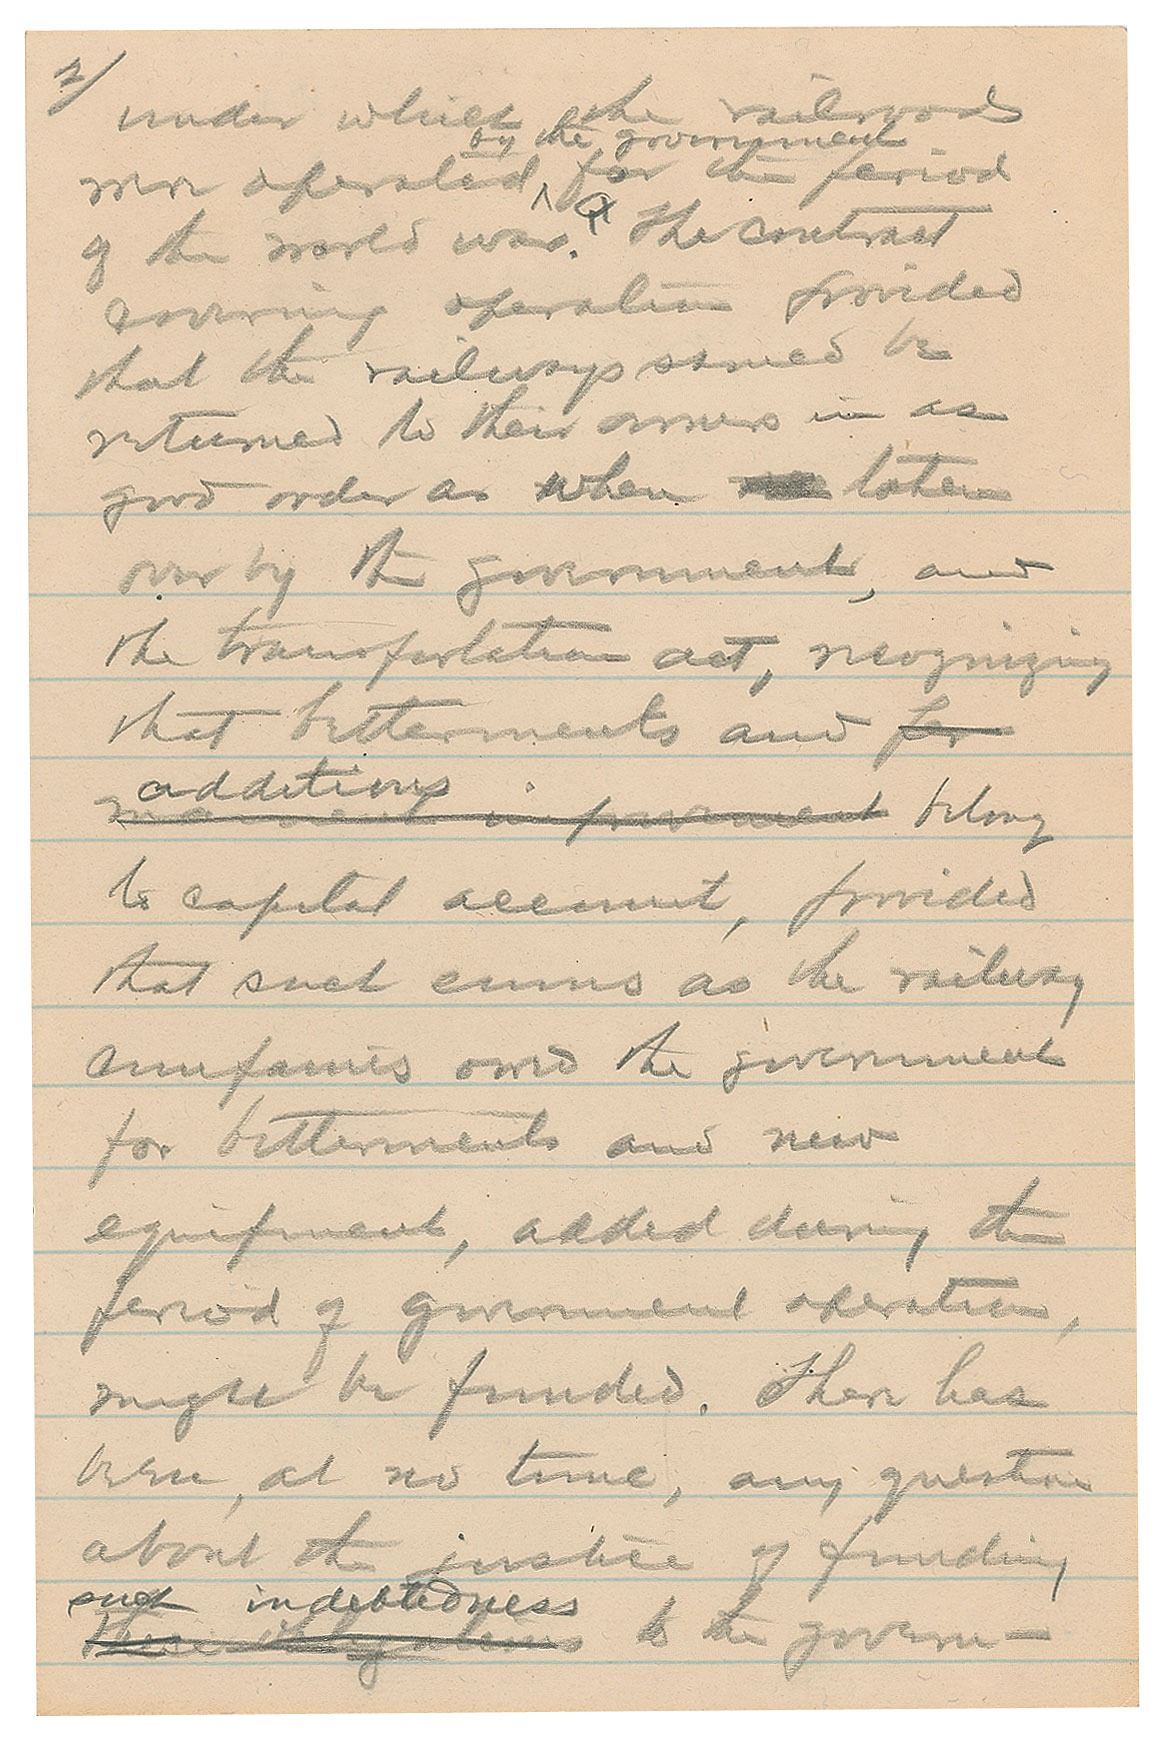 2/
under which the railroads
by the government
were operated ^ for the period
of the world war. The contract
covering operation provided
that the railways somed be
returned to their owners in as
good order as when taken
over by the government, and
the transportation act, recognizing
that betterments and per
additions
manent improvement belong
to capital account, provided
that such sums as the railway
companies owed the government
for betterments and new
equipment, added during the
period of government operation,
might be funded. There has
been, at no time, any question
about the justice of funding
such indebtedness
these obligations to the govern-